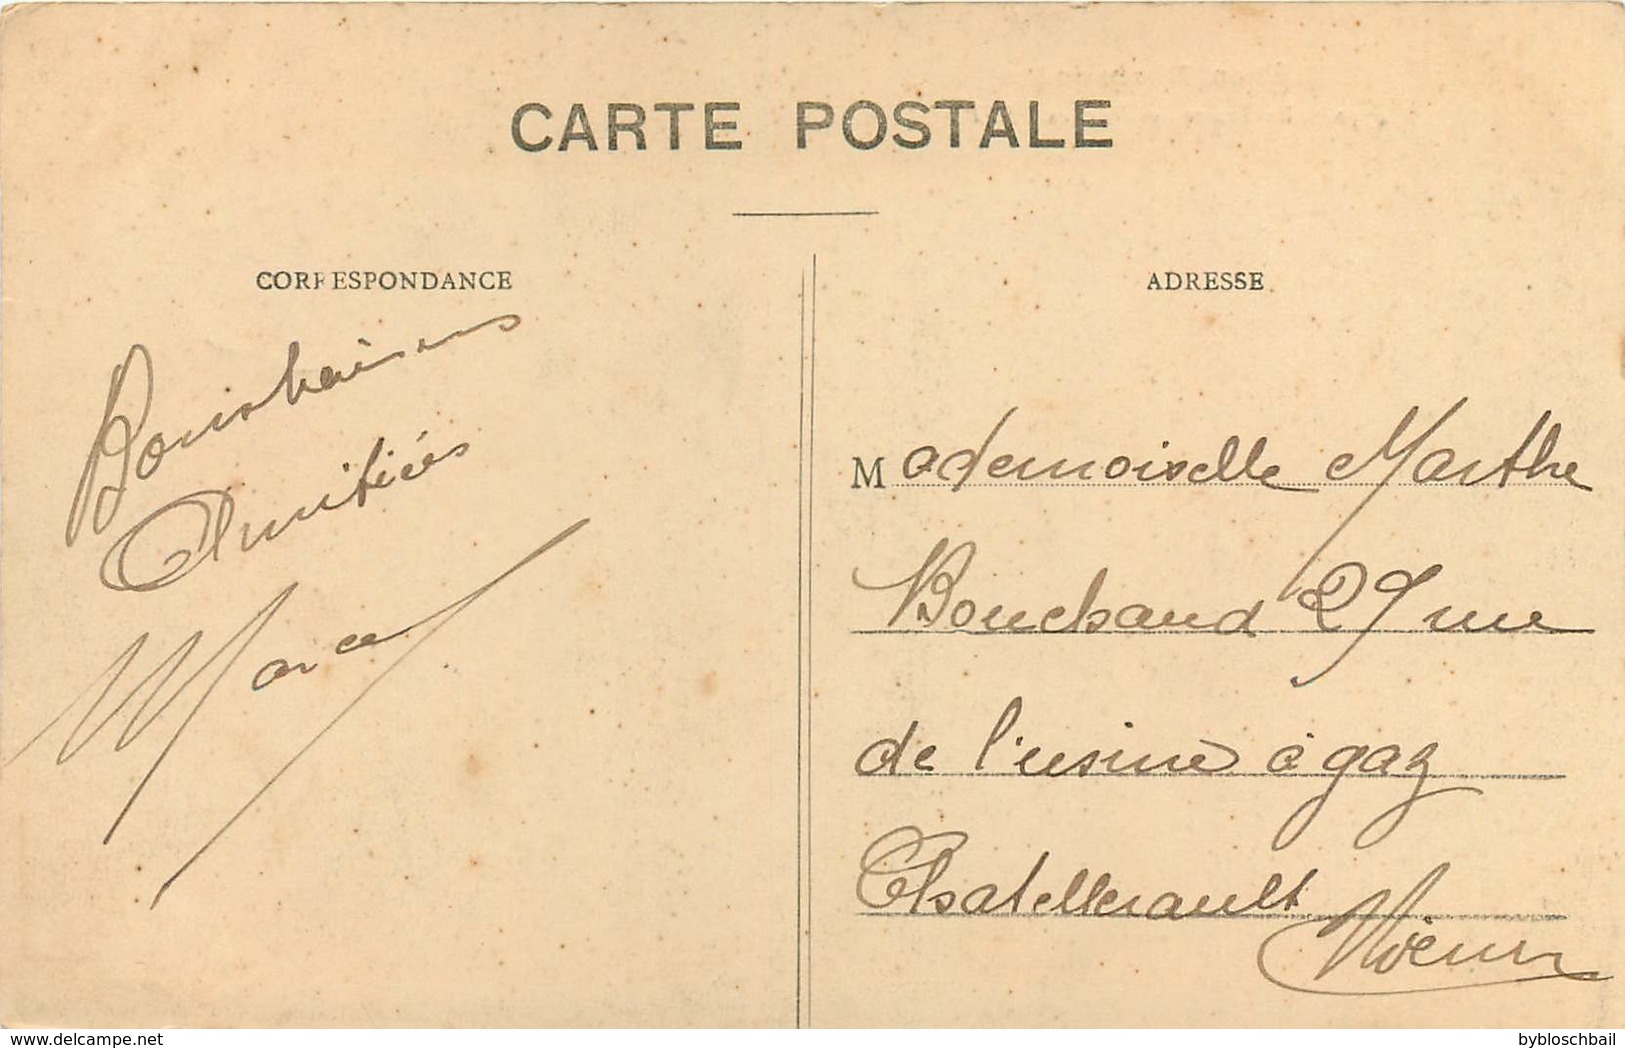 CARTE POSTALE
CORRESPONDANCE
Bons baisers
Amitiés
Marcel
ADRESSE
Mademoiselle Marthe
Bouchaud 29 rue
de l'usine à gaz
Chatellerault
Vienne
delcampe.net
bybloschbail